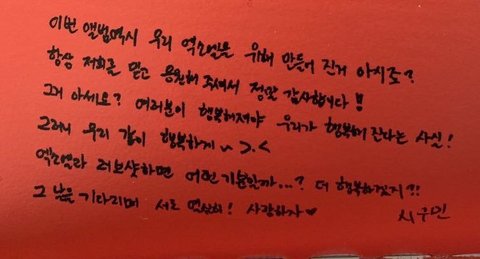 이번 앨범역시 우리 엑소엘을 위해 만들어 진거 아시죠?
항상 저희를 믿고 응원해 주셔서 정말 감사합니다!!
그거 아세요? 여러분이 행복해져야 우리가 행복해 진다는 사실!
그러니 우리 같이 행복하게~ >.<
엑소엘과 러브샷하면 어떤 기분일까...? 더 행복하겠지?!
그 날을 기다리며 서로 열심히! 사랑하자♥
시우민